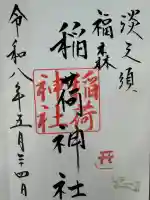 淡之須
福森
稲荷神社
稲荷神社
令和八年五月二四日